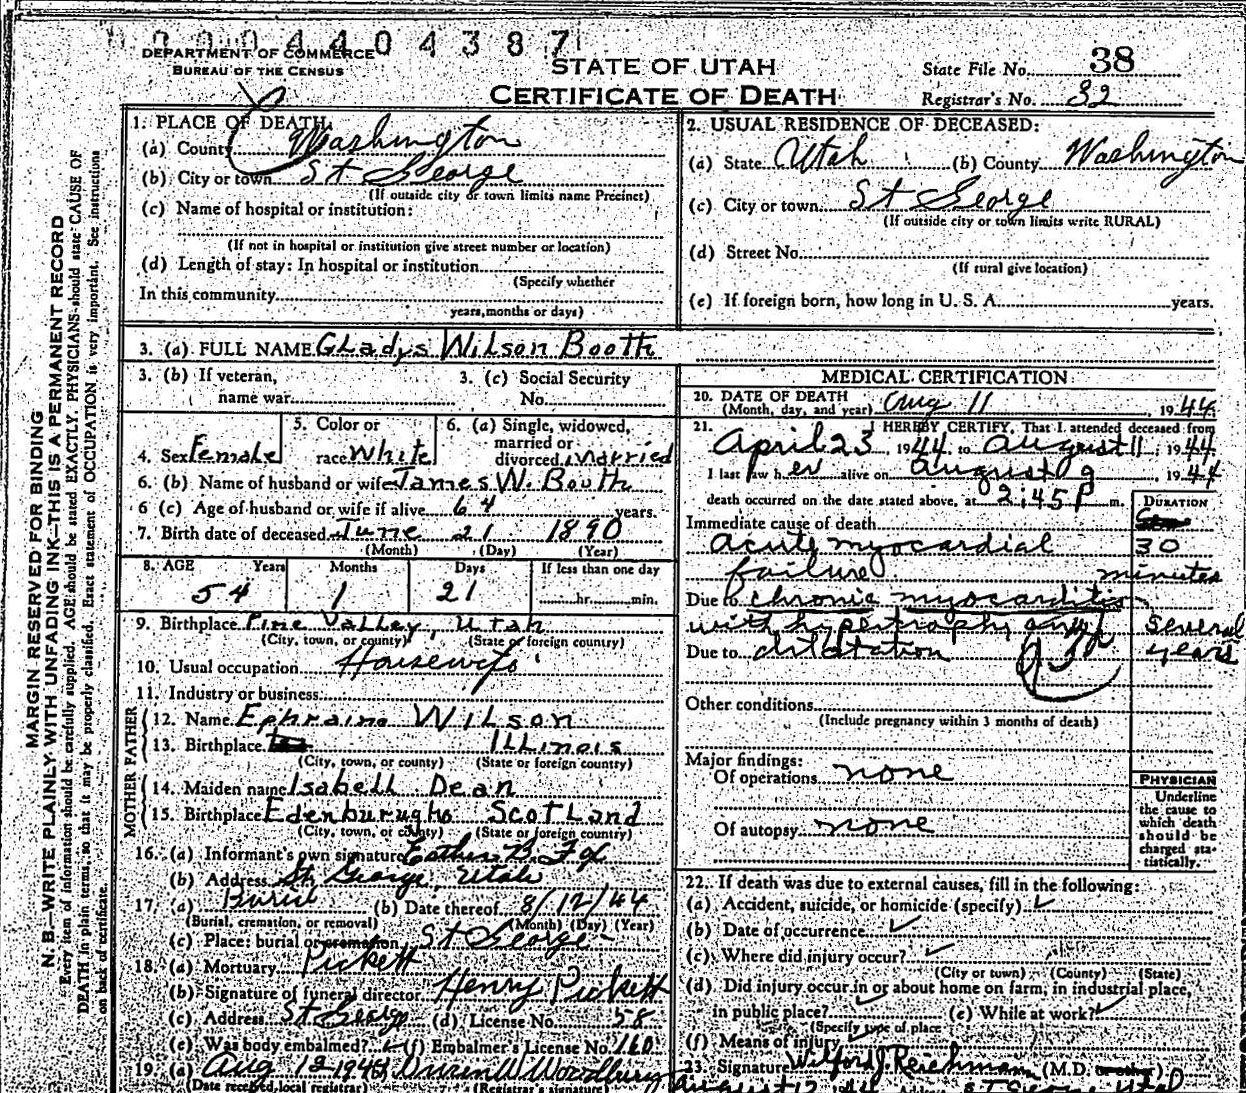 2004404387
DEPARTMENT OF COMMERCE
BUREAU OF THE CENSUS
STATE OF UTAH
CERTIFICATE OF DEATH
State File No. 38
Registrar's No. 32
1. PLACE OF DEATH:
(a) County Washington
(b) City or town St George
(If outside city or town limits name Precinct)
(c) Name of hospital or institution:
(If not in hospital or institution give street number or location)
(d) Length of stay: In hospital or institution
(Specify whether
In this community
years, months or days)
2. USUAL RESIDENCE OF DECEASED:
(a) State Utah (b) County Washington
(c) City or town St George
(If outside city or town limits write RURAL)
(d) Street No.
(If rural give location)
(e) If foreign born, how long in U. S. A. years.
3. (a) FULL NAME GLadys Wilson Booth
3. (b) If veteran,
name war
3. (c) Social Security
No.
4. Sex Female
5. Color or
race White
6. (a) Single, widowed,
married or
divorced Married
6. (b) Name of husband or wife James W. Booth
6 (c) Age of husband or wife if alive 64 years.
7. Birth date of deceased June 21 1890
(Month) (Day) (Year)
8. AGE Years Months Days If less than one day
54 1 21 hr. min.
9. Birthplace Pine Valley, Utah
(City, town, or county) (State or foreign country)
10. Usual occupation Housewife
11. Industry or business
FATHER
12. Name Ephraim Wilson
13. Birthplace ILLinois
(City, town, or county) (State or foreign country)
MOTHER
14. Maiden name Isabell Dean
15. Birthplace Edenburugho ScotLand
(City, town, or county) (State or foreign country)
16. (a) Informant's own signature Esther B. Fox
(b) Address St. George, Utah
17. (a) Burial (b) Date thereof 8/12/44
(Burial, cremation, or removal) (Month) (Day) (Year)
(c) Place: burial or cremation St George
18. (a) Mortuary Pickett
(b) Signature of funeral director Henry Pickett
(c) Address St George (d) License No. 58
(e) Was body embalmed? ✓ (f) Embalmer's License No. 160
19. (a) Aug 12 1944 Woodbury
(Date received local registrar) (Registrar's signature)
MEDICAL CERTIFICATION
20. DATE OF DEATH
(Month, day, and year) Aug 11, 1944
21. I HEREBY CERTIFY, That I attended deceased from
April 23, 1944 to August 11, 1944
I last saw her alive on August 9 1944
death occurred on the date stated above, at 2:45 P m.
DURATION
Immediate cause of death
acute myocardial 30
failure minutes
Due to chronic myocarditis
with hypertrophy and several
Due to dilatation years
Other conditions
(Include pregnancy within 3 months of death)
Major findings:
Of operations none
Of autopsy none
PHYSICIAN
Underline
the cause to
which death
should be
charged sta-
tistically.
22. If death was due to external causes, fill in the following:
(a) Accident, suicide, or homicide (specify) ✓
(b) Date of occurrence ✓
(c) Where did injury occur? ✓
(City or town) (County) (State)
(d) Did injury occur in or about home on farm, in industrial place,
in public place? ✓ (e) While at work? ✓
(Specify type of place
(f) Means of injury ✓
23. Signature Wilford J. Reichmann (M.D. or other)
August 12 1944 Address St George Utah
MARGIN RESERVED FOR BINDING
N. B.—WRITE PLAINLY WITH UNFADING INK—THIS IS A PERMANENT RECORD
Every item of information should be carefully supplied. AGE should be stated EXACTLY. PHYSICIANS should state CAUSE OF
DEATH in plain terms, so that it may be properly classified. Exact statement of OCCUPATION is very important. See instructions
on back of certificate.